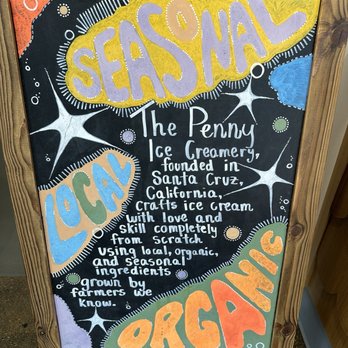 SEASONAL
The Penny
Ice Creamery,
founded in
Santa Cruz,
California,
crafts ice cream
with love and
skill completely
from scratch
using local, organic,
and seasonal
ingredients
grown by
farmers we
know.
LOCAL
ORGANIC